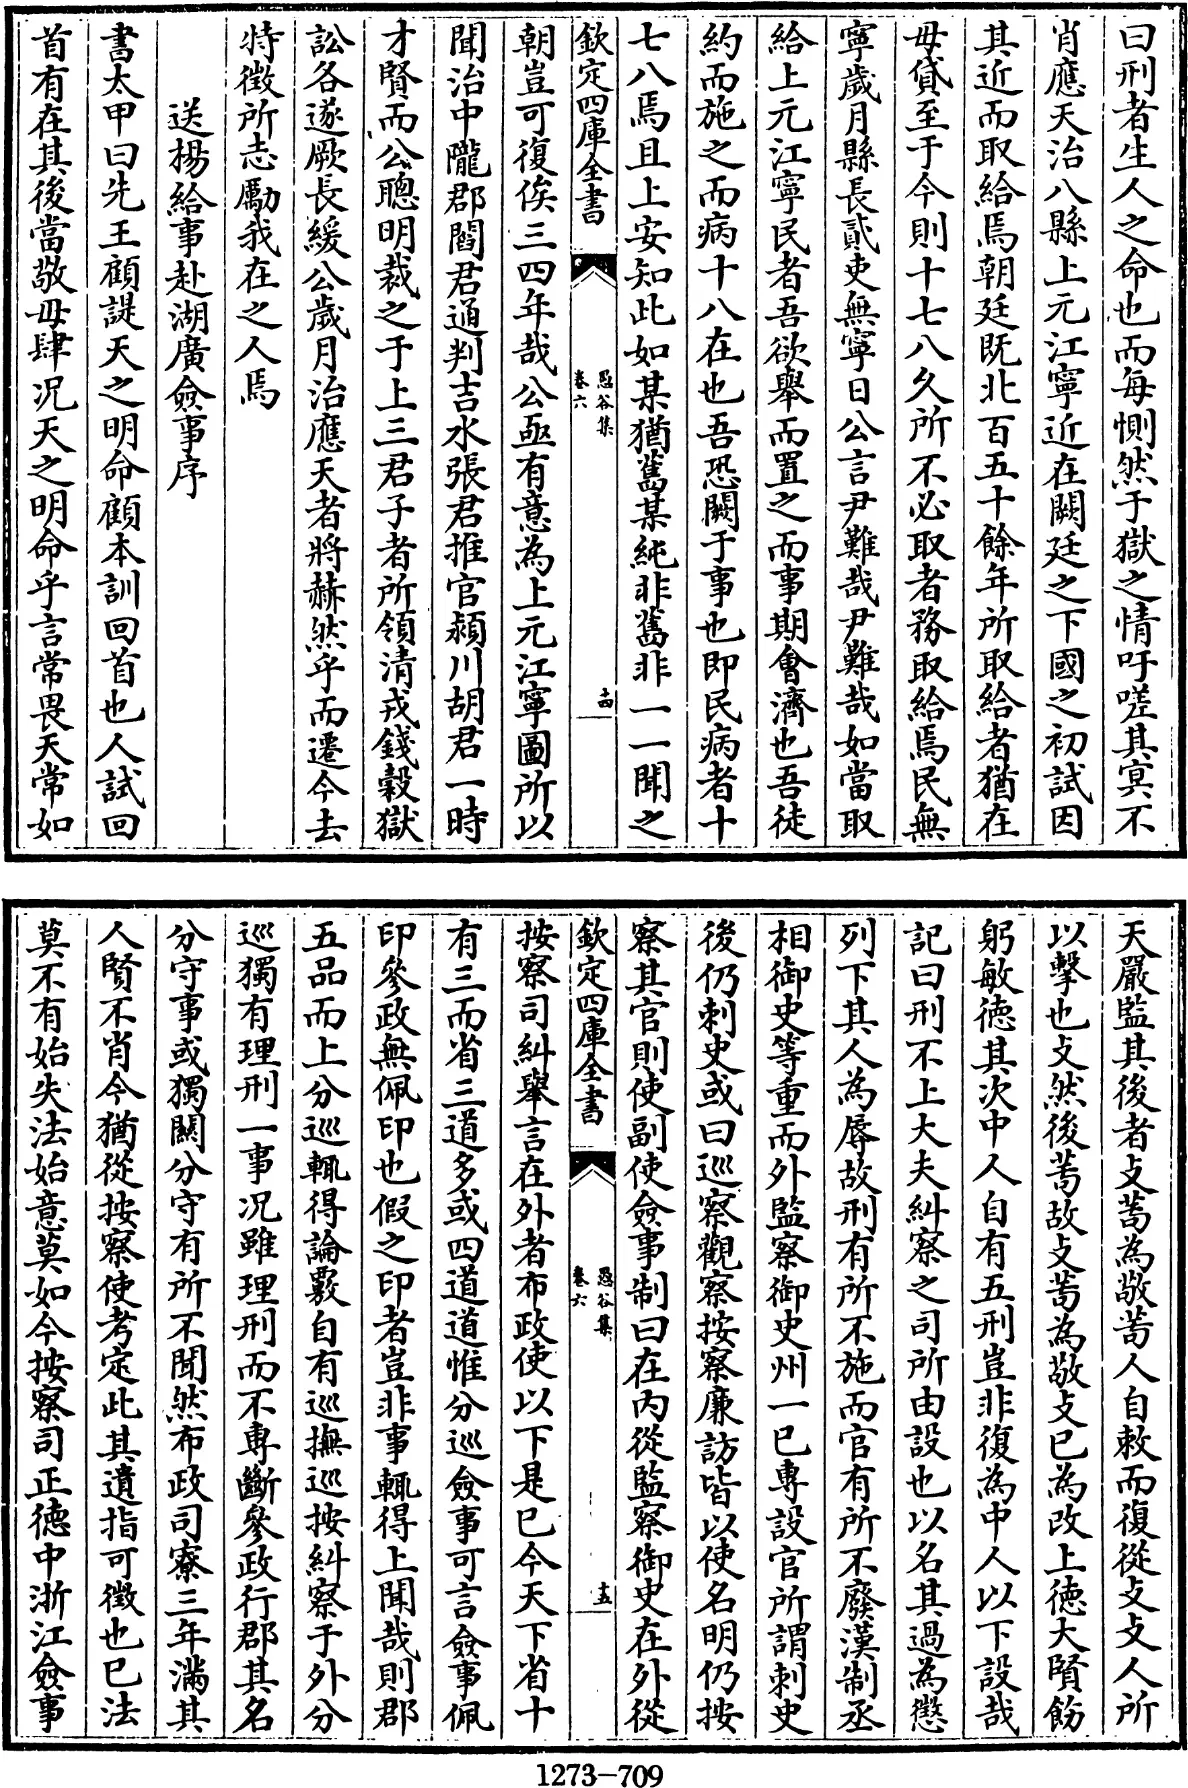 曰刑者生人之命也而每惻然于獄之情吁嗟其冥不
肖應天治八縣上元江寧近在闕廷之下國之初試因
其近而取給焉朝廷既北百五十餘年所取給者猶在
毋貸至于今則十七八久所不必取者務取給焉民無
寧歲月縣長貳吏無寧日公言尹難哉尹難哉如當取
給上元江寧民者吾欲舉而置之而事期會濟也吾徒
約而施之而病十八在也吾恐闕于事也即民病者十
七八焉且上安知此如某猶舊某純非舊非一一聞之
欽定四庫全書
愚谷集
卷六
十四
朝豈可復俟三四年哉公亟有意為上元江寧圖所以
聞治中隴郡閻君通判吉水張君推官潁川胡君一時
才賢而公聰明裁之于上三君子者所領清戎錢穀獄
訟各遂厥長緩公歲月治應天者將赫然乎而遷今去
特徵所志勵我在之人焉
送楊給事赴湖廣僉事序
書太甲曰先王顧諟天之明命顧本訓回首也人試回
首有在其後當敬毋肆況天之明命乎言常畏天常如
天嚴監其後者攴茍為敬茍人自敕而復從攴攴人所
以擊也攴然後茍故攴茍為敬攴巳為改上德大賢飭
躬敏德其次中人自有五刑豈非復為中人以下設哉
記曰刑不上大夫糾察之司所由設也以名其過為懲
列下其人為辱故刑有所不施而官有所不廢漢制丞
相御史等重而外監察御史州一巳專設官所謂刺史
後仍刺史或曰巡察觀察按察廉訪皆以使名明仍按
察其官則使副使僉事制曰在內從監察御史在外從
欽定四庫全書
愚谷集
卷六
十五
按察司糾舉言在外者布政使以下是巳今天下省十
有三而省三道多或四道道惟分巡僉事可言僉事佩
印參政無佩印也假之印者豈非事輒得上聞哉則郡
五品而上分巡輒得論覈自有巡撫巡按糾察于外分
巡獨有理刑一事況雖理刑而不專斷參政行郡其名
分守事或獨關分守有所不聞然布政司寮三年滿其
人賢不肖今猶從按察使考定此其遺指可徵也巳法
莫不有始失法始意莫如今按察司正德中浙江僉事
1273-709